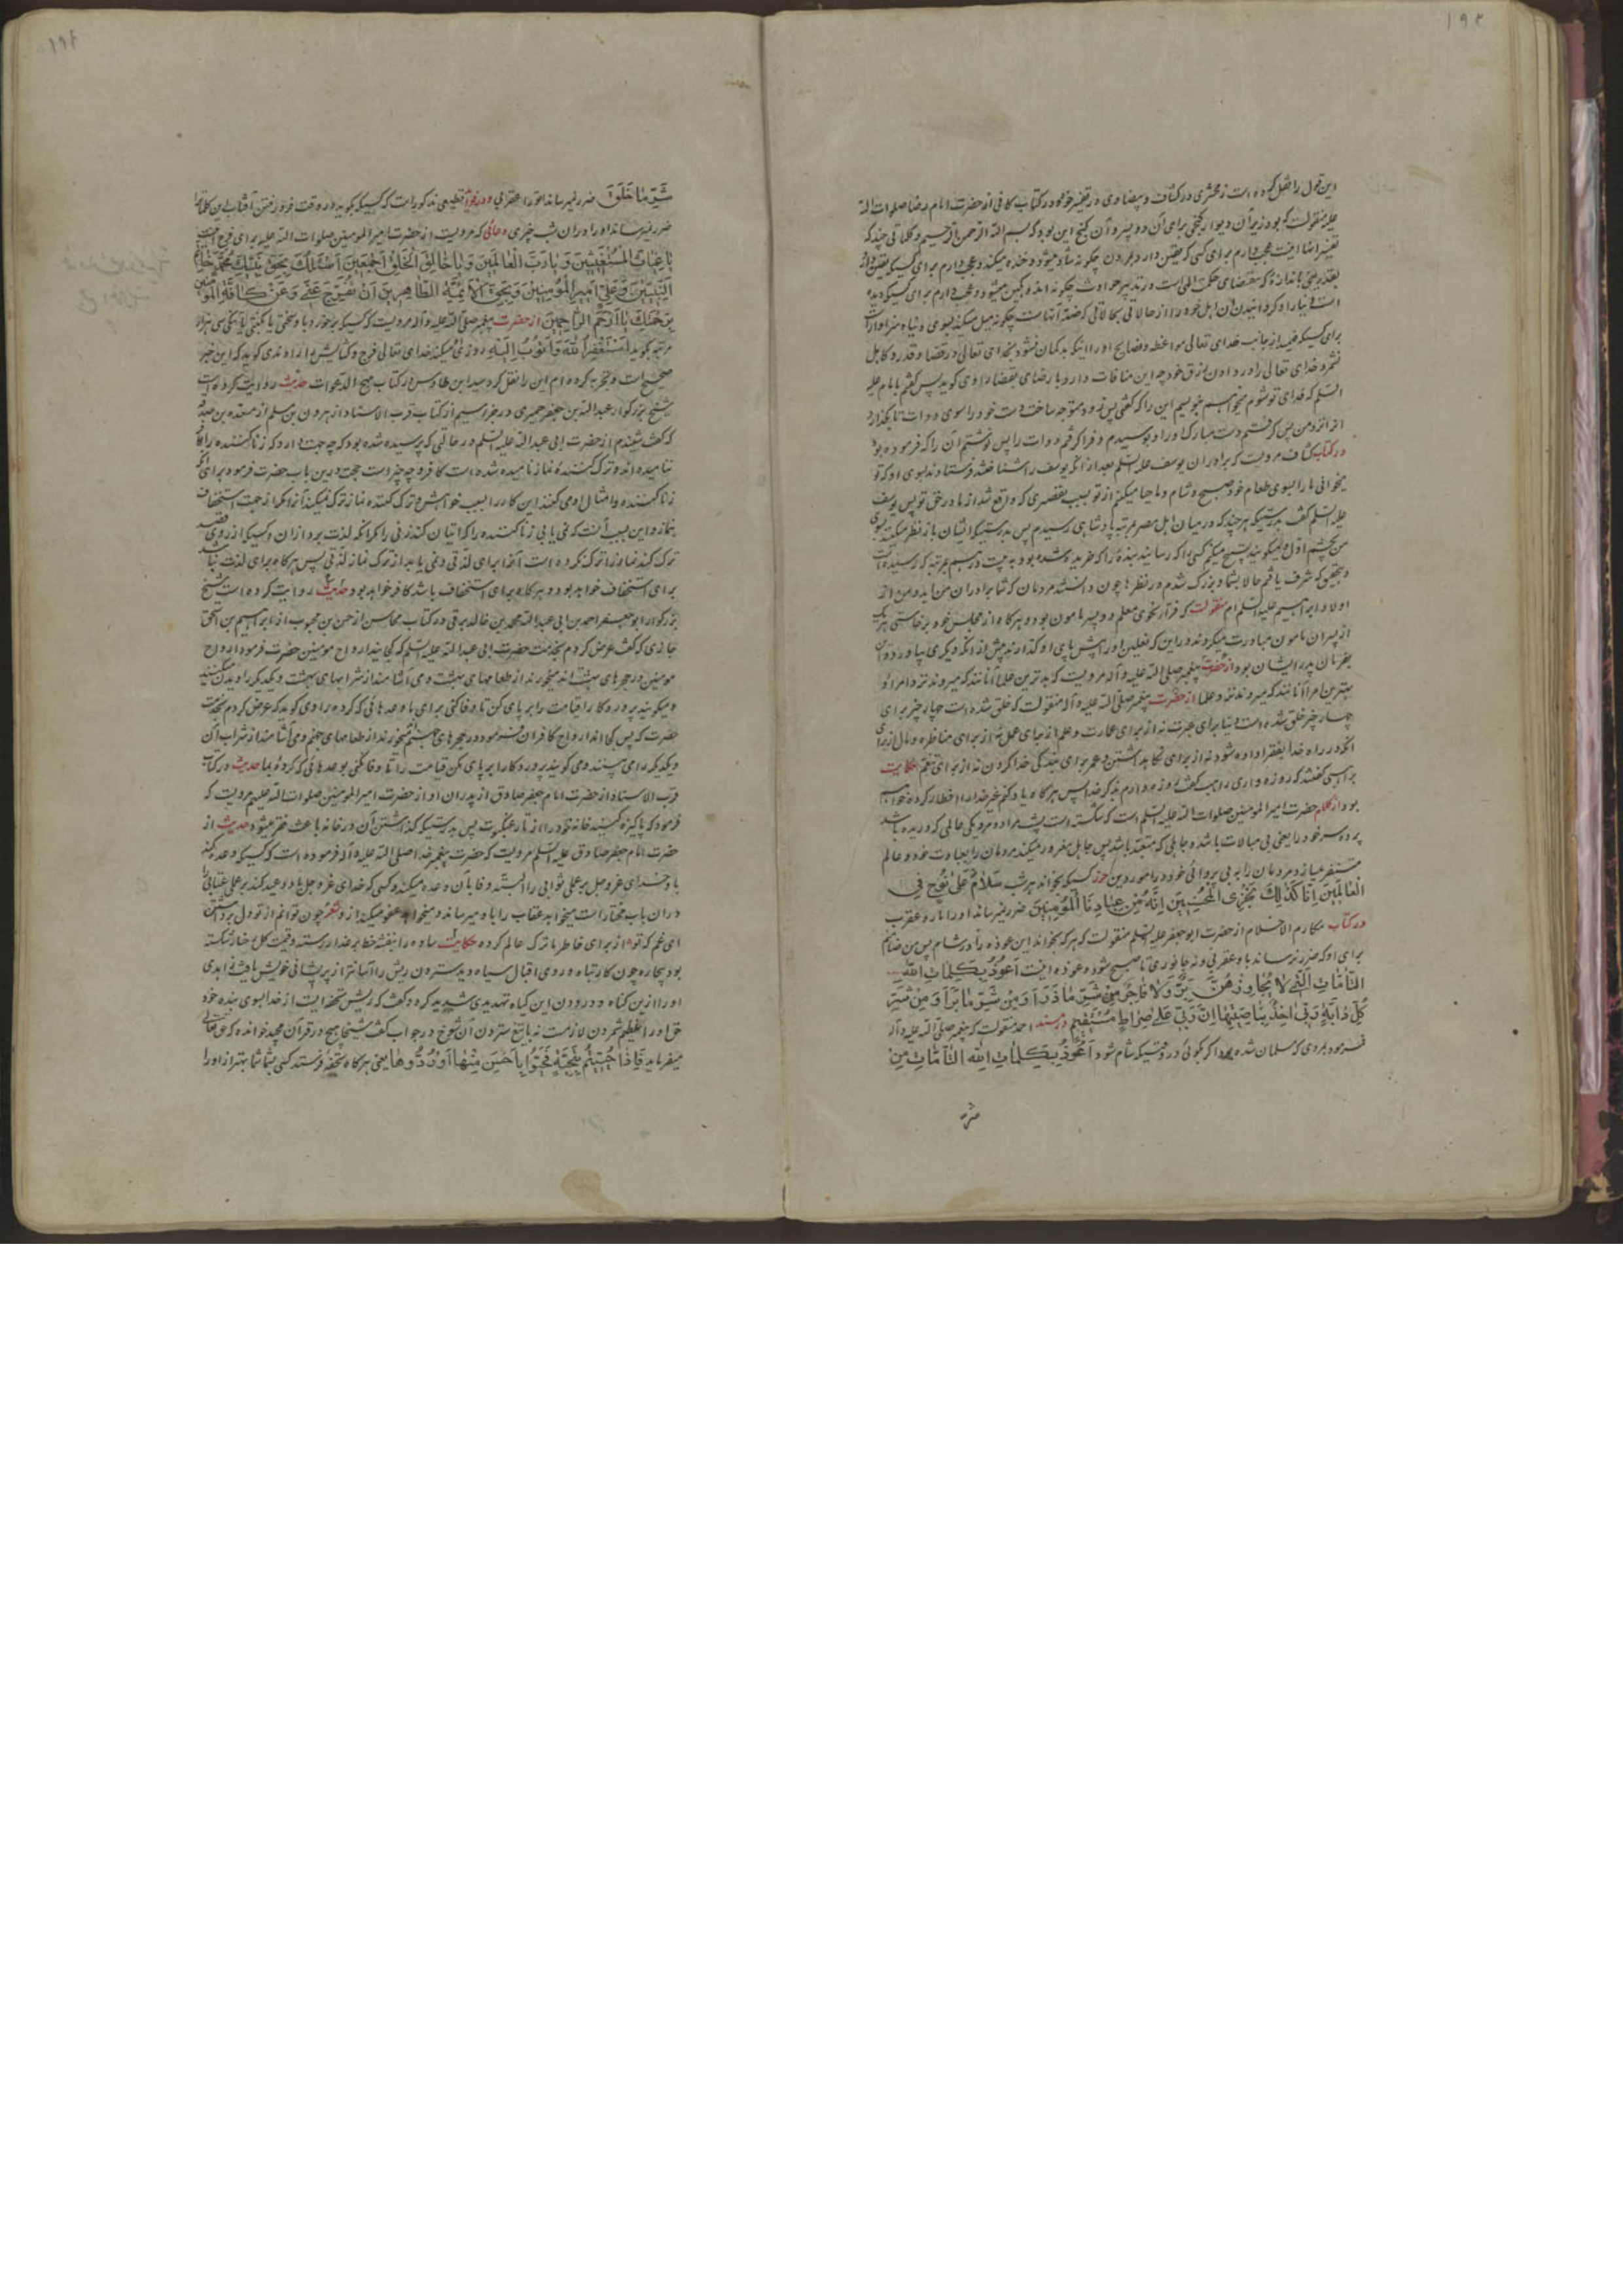 ۱۹۲
این قول را نقل کرده است زمخشری در کشاف و بیضاوی در تفسیر خود و در کتاب کافی از حضرت امام رضا صلوات الله
علیه منقولست که بود زیر آن دیوار گنجی برای آن دو پسر و آن گنج این بود که بسم الله الرحمن الرحیم و کلماتی چند که
تفسیر آنها اینست عجب دارم برای کسی که یقین دارد بمردن چگونه شاد میشود و خنده میکند و عجب دارم برای کسیکه یقین دارد
بقدر یعنی باندازهٔ که مقتضای حکمت الهی است در تدبیر حوادث چگونه اندوهگین میشود و عجب دارم برای کسیکه دیده
است دنیا را و گردانیدن آن اهل خود را از حالاتی بحالاتی که ضد آنهاست چگونه میل میکند بسوی دنیا و سزاوار است
برای کسیکه فهمید از جانب خدای تعالی مواعظ و نصایح او را اینکه بدگمان نشود بخدای تعالی در قضا و قدر و کاهل
نشمرد خدای تعالی را در دادن رزق خود چه این منافات دارد با رضای بقضا راوی گوید پس گفتم بامام علیه
السلم که فدای تو شوم میخواهم بنویسم این را که گفتی پس زود متوجه ساخت دست خود را سوی دوات تا بگذارد
آنرا نزد من پس گرفتم دست مبارک او را و بوسیدم و فرا گرفتم دوات را پس نوشتم آن را که فرموده بود
در کتاب کشاف مرویست که برادران یوسف علیه السلم بعد از آنکه یوسف را شناختند فرستادند بسوی او که تو
میخوانی ما را بسوی طعام خود صبح و شام و ما حیا میکنیم از تو بسبب تقصیری که واقع شد از ما در حق تو پس یوسف
علیه السلم گفت بدرستیکه هر چند که در میان اهل مصر بمرتبه پادشاهی رسیدم پس بدرستیکه ایشان باز نظر میکنند بسوی
من بچشم اول و میگویند تسبیح میکنیم کسی را که رسانید بندهٔ را که خریده شده بود به بیست درهم بمرتبه که رسیده است
و بتحقیق که شرف یافتم حالا بشما و بزرگ شدم در نظرها چون دانستند مردمان که شما برادران من‌اید و من از
اولاد ابراهیم علیه السلم‌ام منقولست که فراء نحوی معلم دو پسر مامون بود و هر گاه از مجلس خود بر خاستی هر یک
از پسران مامون مبادرت میکردند در این که نعلین او را پیش پای او گذارند پیش از آنکه دیگری بیاورد و آن
بفرمان پدر ایشان بود از حضرت پیغمبر صلی الله علیه و آله مرویست که بدترین علما آنانند که میروند نزد امرا و
بهترین امرا آنانند که میروند نزد علما از حضرت پیغمبر صلی الله علیه و آله منقولست که خلق شده است چهار چیز برای
چهار چیز خلق شده است دنیا برای عبرت نه از برای عمارت و علم از برای عمل نه از برای مناظره و مال از برای
انکه در راه خدا بفقرا داده شود نه از برای نگاه داشتن و عمر برای بندگی خدا کردن نه از برای تنعم حکایت
راهبی گفتند که روزه داری راهب گفت روزه دارم بذکر خدا پس هر گاه یاد کنم غیر خدا را افطار کرده خواهم
بود از کلام حضرت امیر المومنین صلوات الله علیه السلم است که شکسته است پشت مرا دو مرد یکی عالمی که دریده باشد
پرده سر خود را یعنی بی مبالات باشد و جاهلی که متعبد باشد پس جاهل مغرور میکند مردمان را بعبادت خود و عالم
متنفر میسازد مردمان را به بی پروائی خود در امور دین حرز کسیکه بخواند هر شب سَلامٌ عَلیٰ نُوحٍ فِی
الْعَالَمِینَ اِنّا کَذٰلِكَ نَجْزِی الْمُحْسِنِینَ اِنَّهُ مِنْ عِبَادِنَا الْمُؤْمِنِینَ ضرر نمیرساند او را مار و عقرب
در کتاب مکارم الاخلاق از حضرت ابو جعفر علیه السلم منقولست که هر که بخواند این عوذه را در شام پس من ضامنم
برای او که ضرر نرساند باو عقربی و نه جانوری تا صبح شود و عوذه اینست اَعُوذُ بِکَلِمَاتِ اللّٰهِ
التَّامَّاتِ الَّتِی لَا یُجَاوِزُهُنَّ بَرٌّ وَلَا فَاجِرٌ مِنْ شَرِّ مَا ذَرَاَ وَمِنْ شَرِّ مَا بَرَاَ وَمِنْ شَرِّ
کُلِّ دَابَّةٍ رَبِّی اٰخِذٌ بِنَاصِیَتِهَا اِنَّ رَبِّی عَلیٰ صِرَاطٍ مُسْتَقِیمٍ در مسند احمد منقولست که پیغمبر صلی الله علیه و آله
فرمود بمردی که مسلمان شده بود اگر بگوئی در وقتیکه شام شود اَعُوذُ بِکَلِمَاتِ اللّٰهِ التَّامَّاتِ مِنْ
شر
شَرِّ مَا خَلَقَ ضرر نمیرساند تو را عقربی و در خواص قطیعی مذکور است که کسیکه بگوید در وقت فرو رفتن آفتاب این کلمات را
ضرر نمیرساند او را در آن شب چیزی دعائی که مرویست از حضرت امیر المومنین صلوات الله علیه برای فرج اینست
یَا غِیَاثَ الْمُسْتَغِیثِینَ وَ یَا رَبَّ الْعَالَمِینَ وَ یَا خَالِقَ الْخَلْقِ اَجْمَعِینَ اَسْئَلُكَ بِحَقِّ نَبِیِّكَ مُحَمَّدٍ خَاتَمِ
النَّبِیِّینَ وَ عَلِیٍّ اَمِیرِ الْمُؤْمِنِینَ وَ بِحَقِّ الْاَئِمَّةِ الطَّاهِرِینَ اَنْ تُفَرِّجَ عَنِّی وَ عَنْ کَافَّةِ الْمُؤْمِنِینَ
بِرَحْمَتِكَ یَا اَرْحَمَ الرَّاحِمِینَ از حضرت پیغمبر صلی الله علیه و آله مرویست که کسیکه بر خورد باو سختی یا نکبتی یا تنگی سی هزار
مرتبه بگوید اَسْتَغْفِرُ اللّٰهَ وَ اَتُوبُ اِلَیْهِ روزی میکند خدای تعالی فرج و گشایش را راوندی گوید که این خبر
صحیح است و تجربه کرده‌ام این را نقل کرد سید ابن طاوس در کتاب مهج الدعوات حدیث روایت کرده است
شیخ بزرگوار عبد الله بن جعفر حمیری در جزو سیم از کتاب قرب الاسناد از هرون بن مسلم از مسعده بن صدقه
که گفت شنیدم از حضرت ابی عبد الله علیه السلم در حالتی که پرسیده شده بود که چه جهت دارد که زنا کننده را کافر
ننامیده‌اند و ترک کنندهٔ نماز نامیده شده است کافر و چه چیز است حجت درین باب حضرت فرمود برای آنکه
زنا کننده و امثال او می کنند این کار را بسبب خواهش و ترک کننده نماز ترک نمیکند آنرا مگر از جهت استخفاف
بنماز و این بسبب آنست که نمی یابی زنا کننده را که اتیان کند زنی را مگر آنکه لذت برد از آن و کسیکه از روی قصد
ترک کند نماز را ترک نکرده است آنرا برای لذتی و نمی یابد از ترک نماز لذتی پس هر گاه برای لذت نباشد
برای استخفاف خواهد بود و هر گاه برای استخفاف باشد کافر خواهد بود حدیث روایت کرده است شیخ
بزرگوار ابو جعفر احمد بن ابی عبد الله محمد بن خالد برقی در کتاب محاسن از حسن بن محبوب از ابراهیم بن اسحق
جازی که گفت عرض کردم بخدمت حضرت ابی عبد الله علیه السلم که کجایند ارواح مؤمنین حضرت فرمود ارواح
مومنین در حجره‌های بهشت‌اند میخورند از طعامهای بهشت و می آشامند از شرابهای بهشت و یکدیگر را دیدن میکنند
و میگویند پروردگارا قیامت را بر پای کن تا وفا کنی برای ما وعدهائی که کرده راوی گوید که عرض کردم بخدمت
حضرت که پس کجااند ارواح کافران فرمود در حجرهای جهنم میخورند از طعامهای جهنم و می آشامند از شراب آن
و یکدیگر را می بینند و می گویند پروردگارا بر پای مکن قیامت را تا وفا کنی بوعدهائی که کردهٔ بما حدیث در کتاب
قرب الاسناد از حضرت امام جعفر صادق از پدران او از حضرت امیر المومنین صلوات الله علیهم مرویست که
فرمود که پاکیزه کنید خانه خود را از تار عنکبوت پس بدرستیکه گذاشتن آن در خانه باعث فقر میشود حدیث از
حضرت امام جعفر صادق علیه السلم مرویست که حضرت پیغمبر خدا صلی الله علیه و آله فرموده است که کسیکه وعده کند
باو خدای عز و جل بر عملی ثوابی را البته وفا بآن وعده میکند و کسی که خدای عز و جل باو وعید کند بر عملی عقابی را
در آن باب مختار است میخواهد عقاب را باو میرساند و میخواهد عفو میکند از و شعر چون توانم از تو دل برداشتن
ای غم که تو از برای خاطر ما ترک عالم کرده حکایت ساده را بنفشه خط بر عذار رسته و قیمت گل رخسار شکسته
بود بیچاره چون کار تباه و روی اقبال سیاه دید سترون ریش را آسانتر از پریشانی خویش یافت زاهدی
او را از این گناه و درودن این گیاه تهدیدی شدید کرد و گفت که ریش تحفه ایست از خدا بسوی بنده خود
حق او را تعظیم شمردن لازمست نه با تیغ ستردن آن شوخ در جواب گفت شیخا هیچ در قرآن مجید خوانده که حق تعالی
میفرماید فَاِذَا حُیِّیتُمْ بِتَحِیَّةٍ فَحَیُّوا بِاَحْسَنَ مِنْهَا اَوْ رُدُّوهَا یعنی هر گاه تحفه فرستد کسی بشما شما بهتر از او را